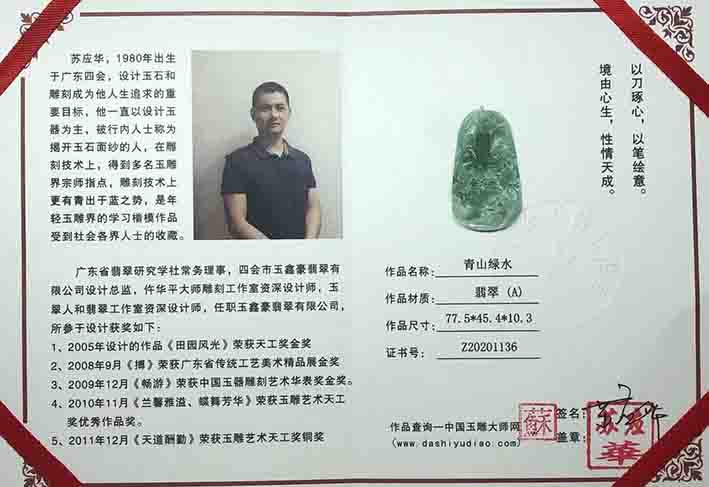 苏应华，1980年出生
于广东四会，设计玉石和
雕刻成为他人生追求的重
要目标，他一直以设计玉
器为主，被行内人士称为
揭开玉石面纱的人，在雕
刻技术上，得到多名玉雕
界宗师指点，雕刻技术上
更有青出于蓝之势，是年
轻玉雕界的学习楷模作品
受到社会各界人士的收藏。
广东省翡翠研究学社常务理事，四会市玉鑫豪翡翠有
限公司设计总监，仵华平大师雕刻工作室资深设计师，玉
翠人和翡翠工作室资深设计师，任职玉鑫豪翡翠有限公司，
所参于设计获奖如下：
1、2005年设计的作品《田园风光》荣获天工奖金奖
2、2008年9月《搏》荣获广东省传统工艺美术精品展金奖
3、2009年12月《畅游》荣获中国玉器雕刻艺术华表奖金奖。
4、2010年11月《兰馨雅溢、蝶舞芳华》荣获玉雕艺术天工
奖优秀作品奖。
5、2011年12月《天道酬勤》荣获玉雕艺术天工奖铜奖
以刀琢心，以笔绘意。
境由心生，性情天成。
作品名称： 青山绿水
作品材质： 翡翠（A）
作品尺寸： 77.5*45.4*10.3
证书号： Z20201136
作品查询—中国玉雕大师网
(www.dashiyudiao.com)
蘇
签名：
盖章：